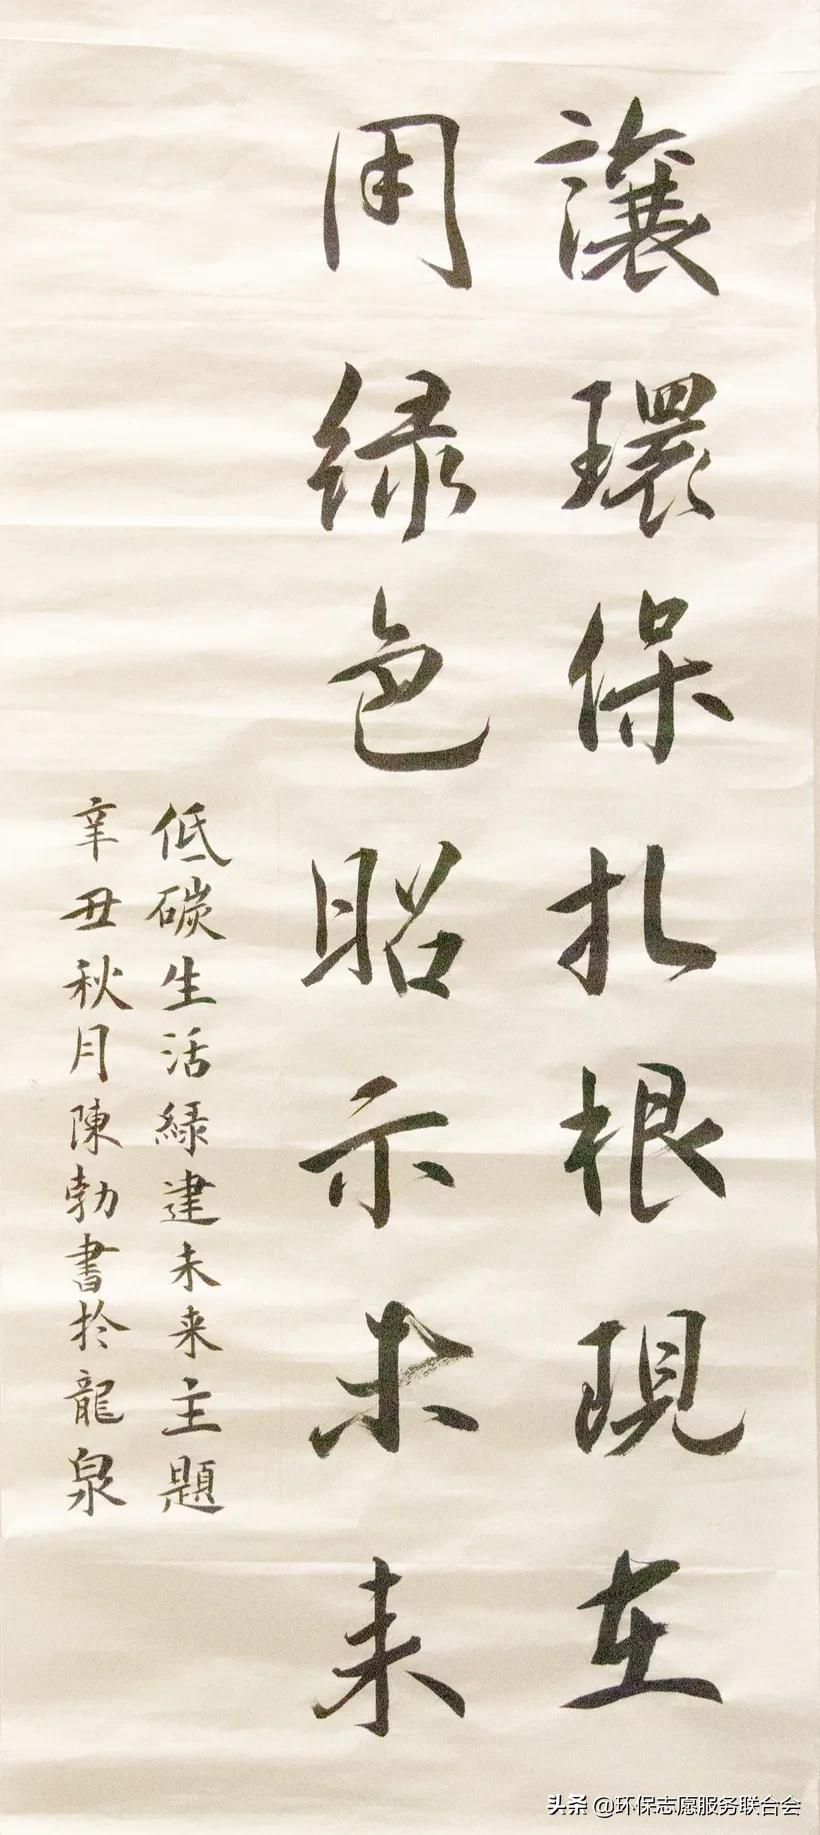 讓環保扎根現在
用绿色昭示未来
低碳生活緑建未来主題
辛丑秋月陳勃書於龍泉
头条 @环保志愿服务联合会